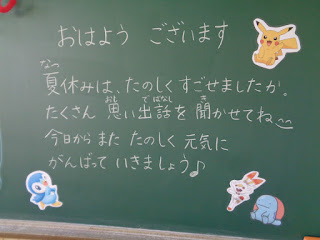 おはよう ございます
夏休みは、たのしくすごせましたか。
たくさん 思い出話を聞かせてね
今日から また たのしく 元気に
がんばって いきましょう♪